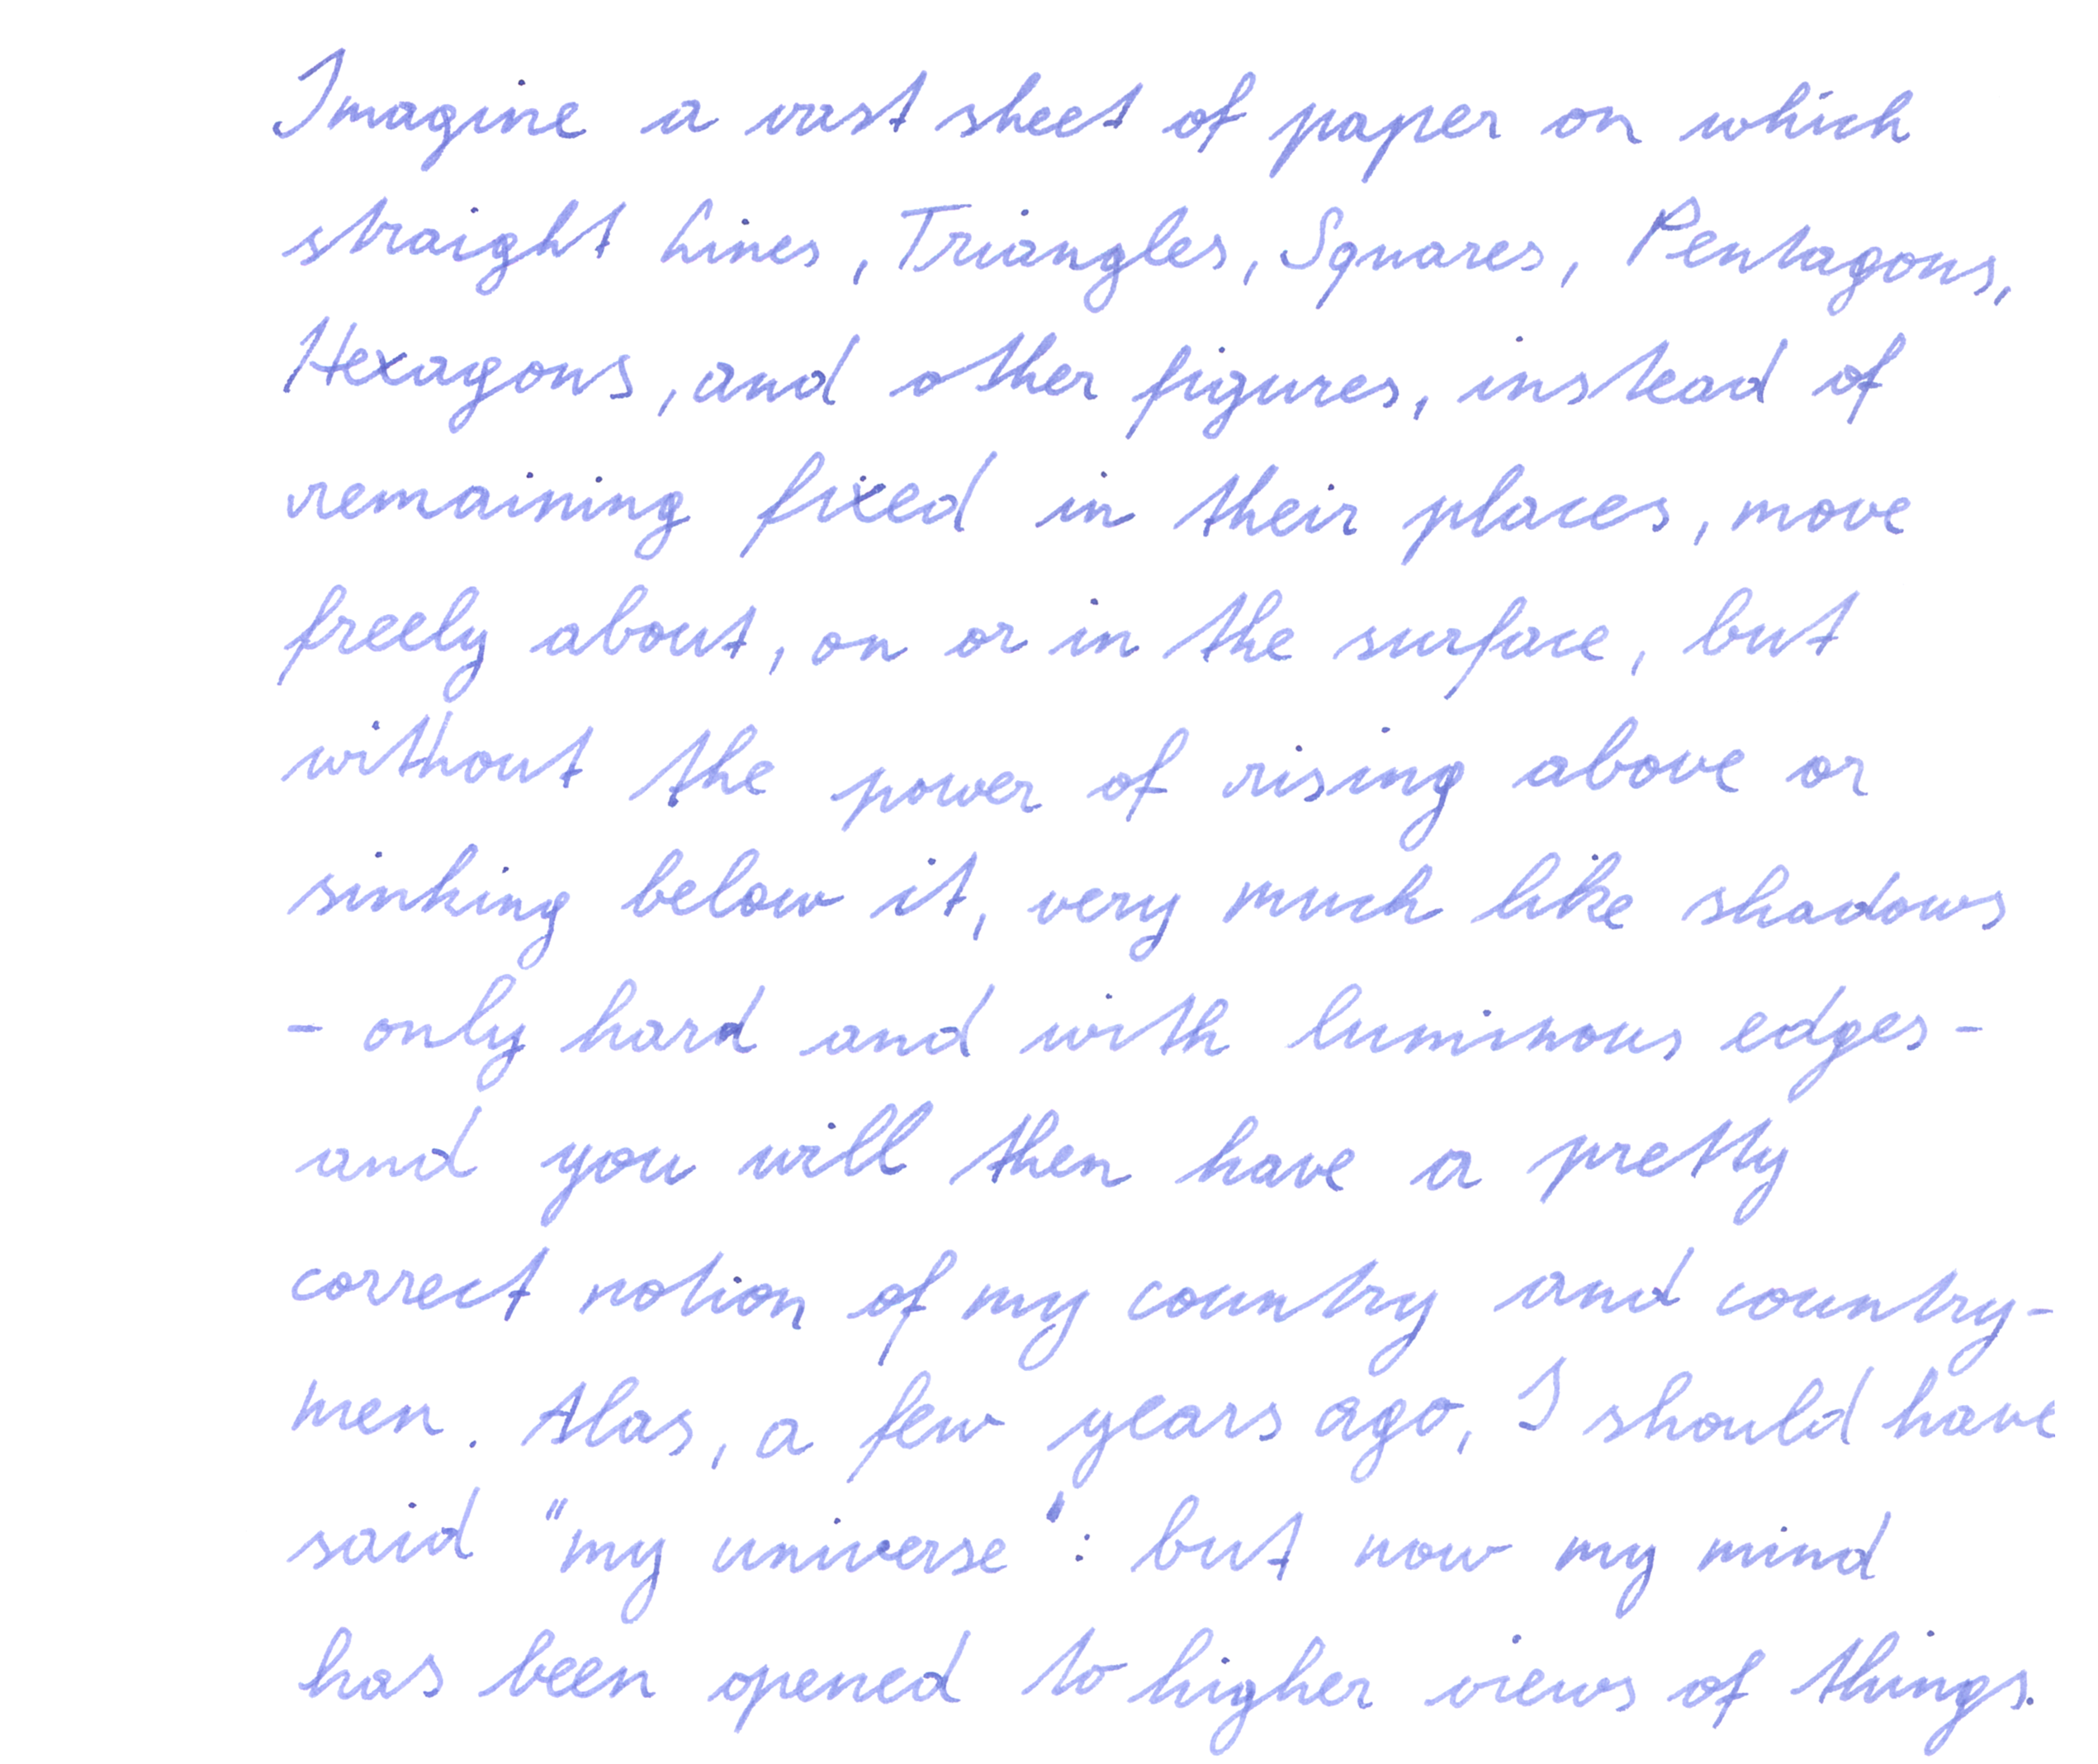 Imagine a vast sheet of paper on which
straight Lines, Triangles, Squares, Pentagons,
Hexagons, and other figures, instead of
remaining fixed in their places, move
freely about, on or in the surface, but
without the power of rising above or
sinking below it, very much like shadows
- only hard and with luminous edges -
and you will then have a pretty
correct notion of my country and country-
men. Alas, a few years ago, I should have
said "my universe": but now my mind
has been opened to higher views of things.